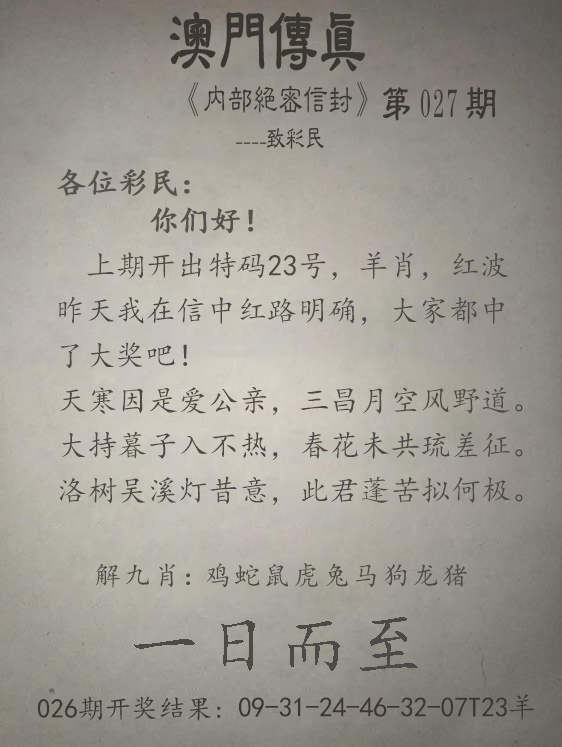 澳門傳真
《内部絕密信封》第027期
----致彩民
各位彩民：
你们好！
上期开出特码23号，羊肖，红波
昨天我在信中红路明确，大家都中
了大奖吧！
天寒因是爱公亲，三昌月空风野道。
大持暮子入不热，春花未共琉差征。
洛树吴溪灯昔意，此君蓬苦拟何极。
解九肖：鸡蛇鼠虎兔马狗龙猪
一日而至
026期开奖结果：09-31-24-46-32-07T23羊